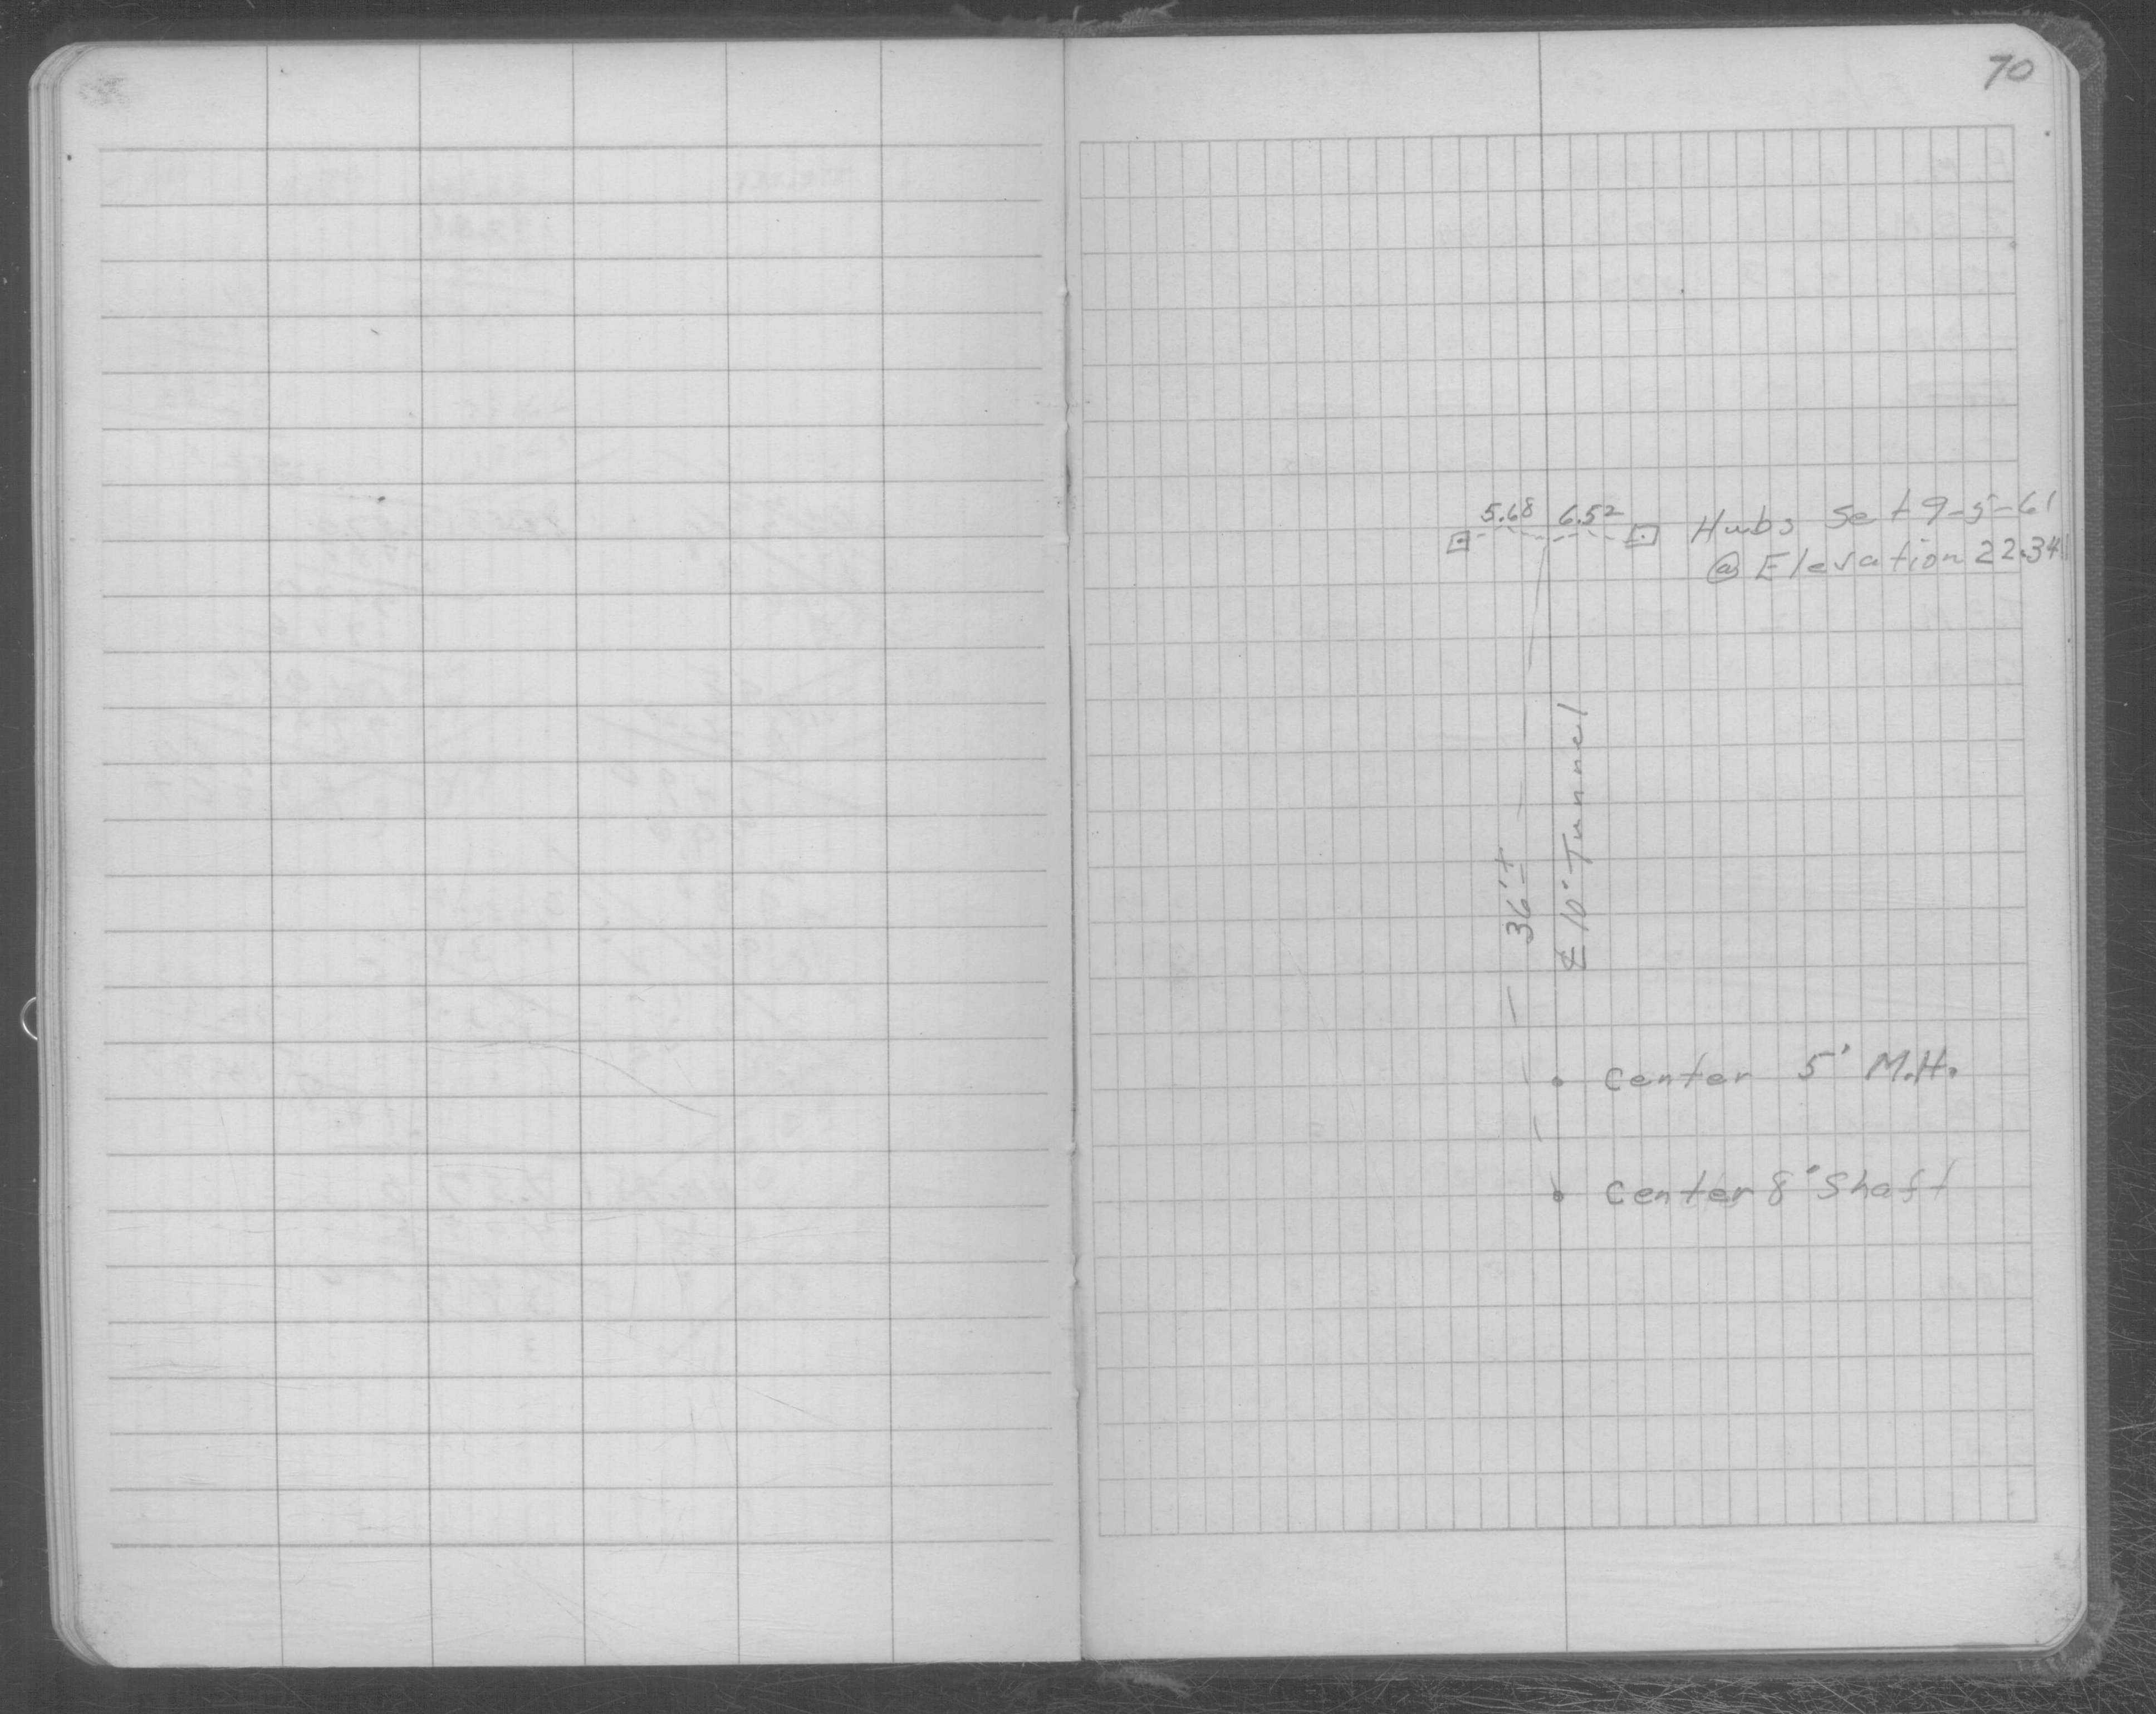 70
5.68 6.52 Hubs Set 9-5-61
@ Elevation 22.34
36'±
℄ 10" Tunnel
Center 5' M.H.
Center 8' Shaft